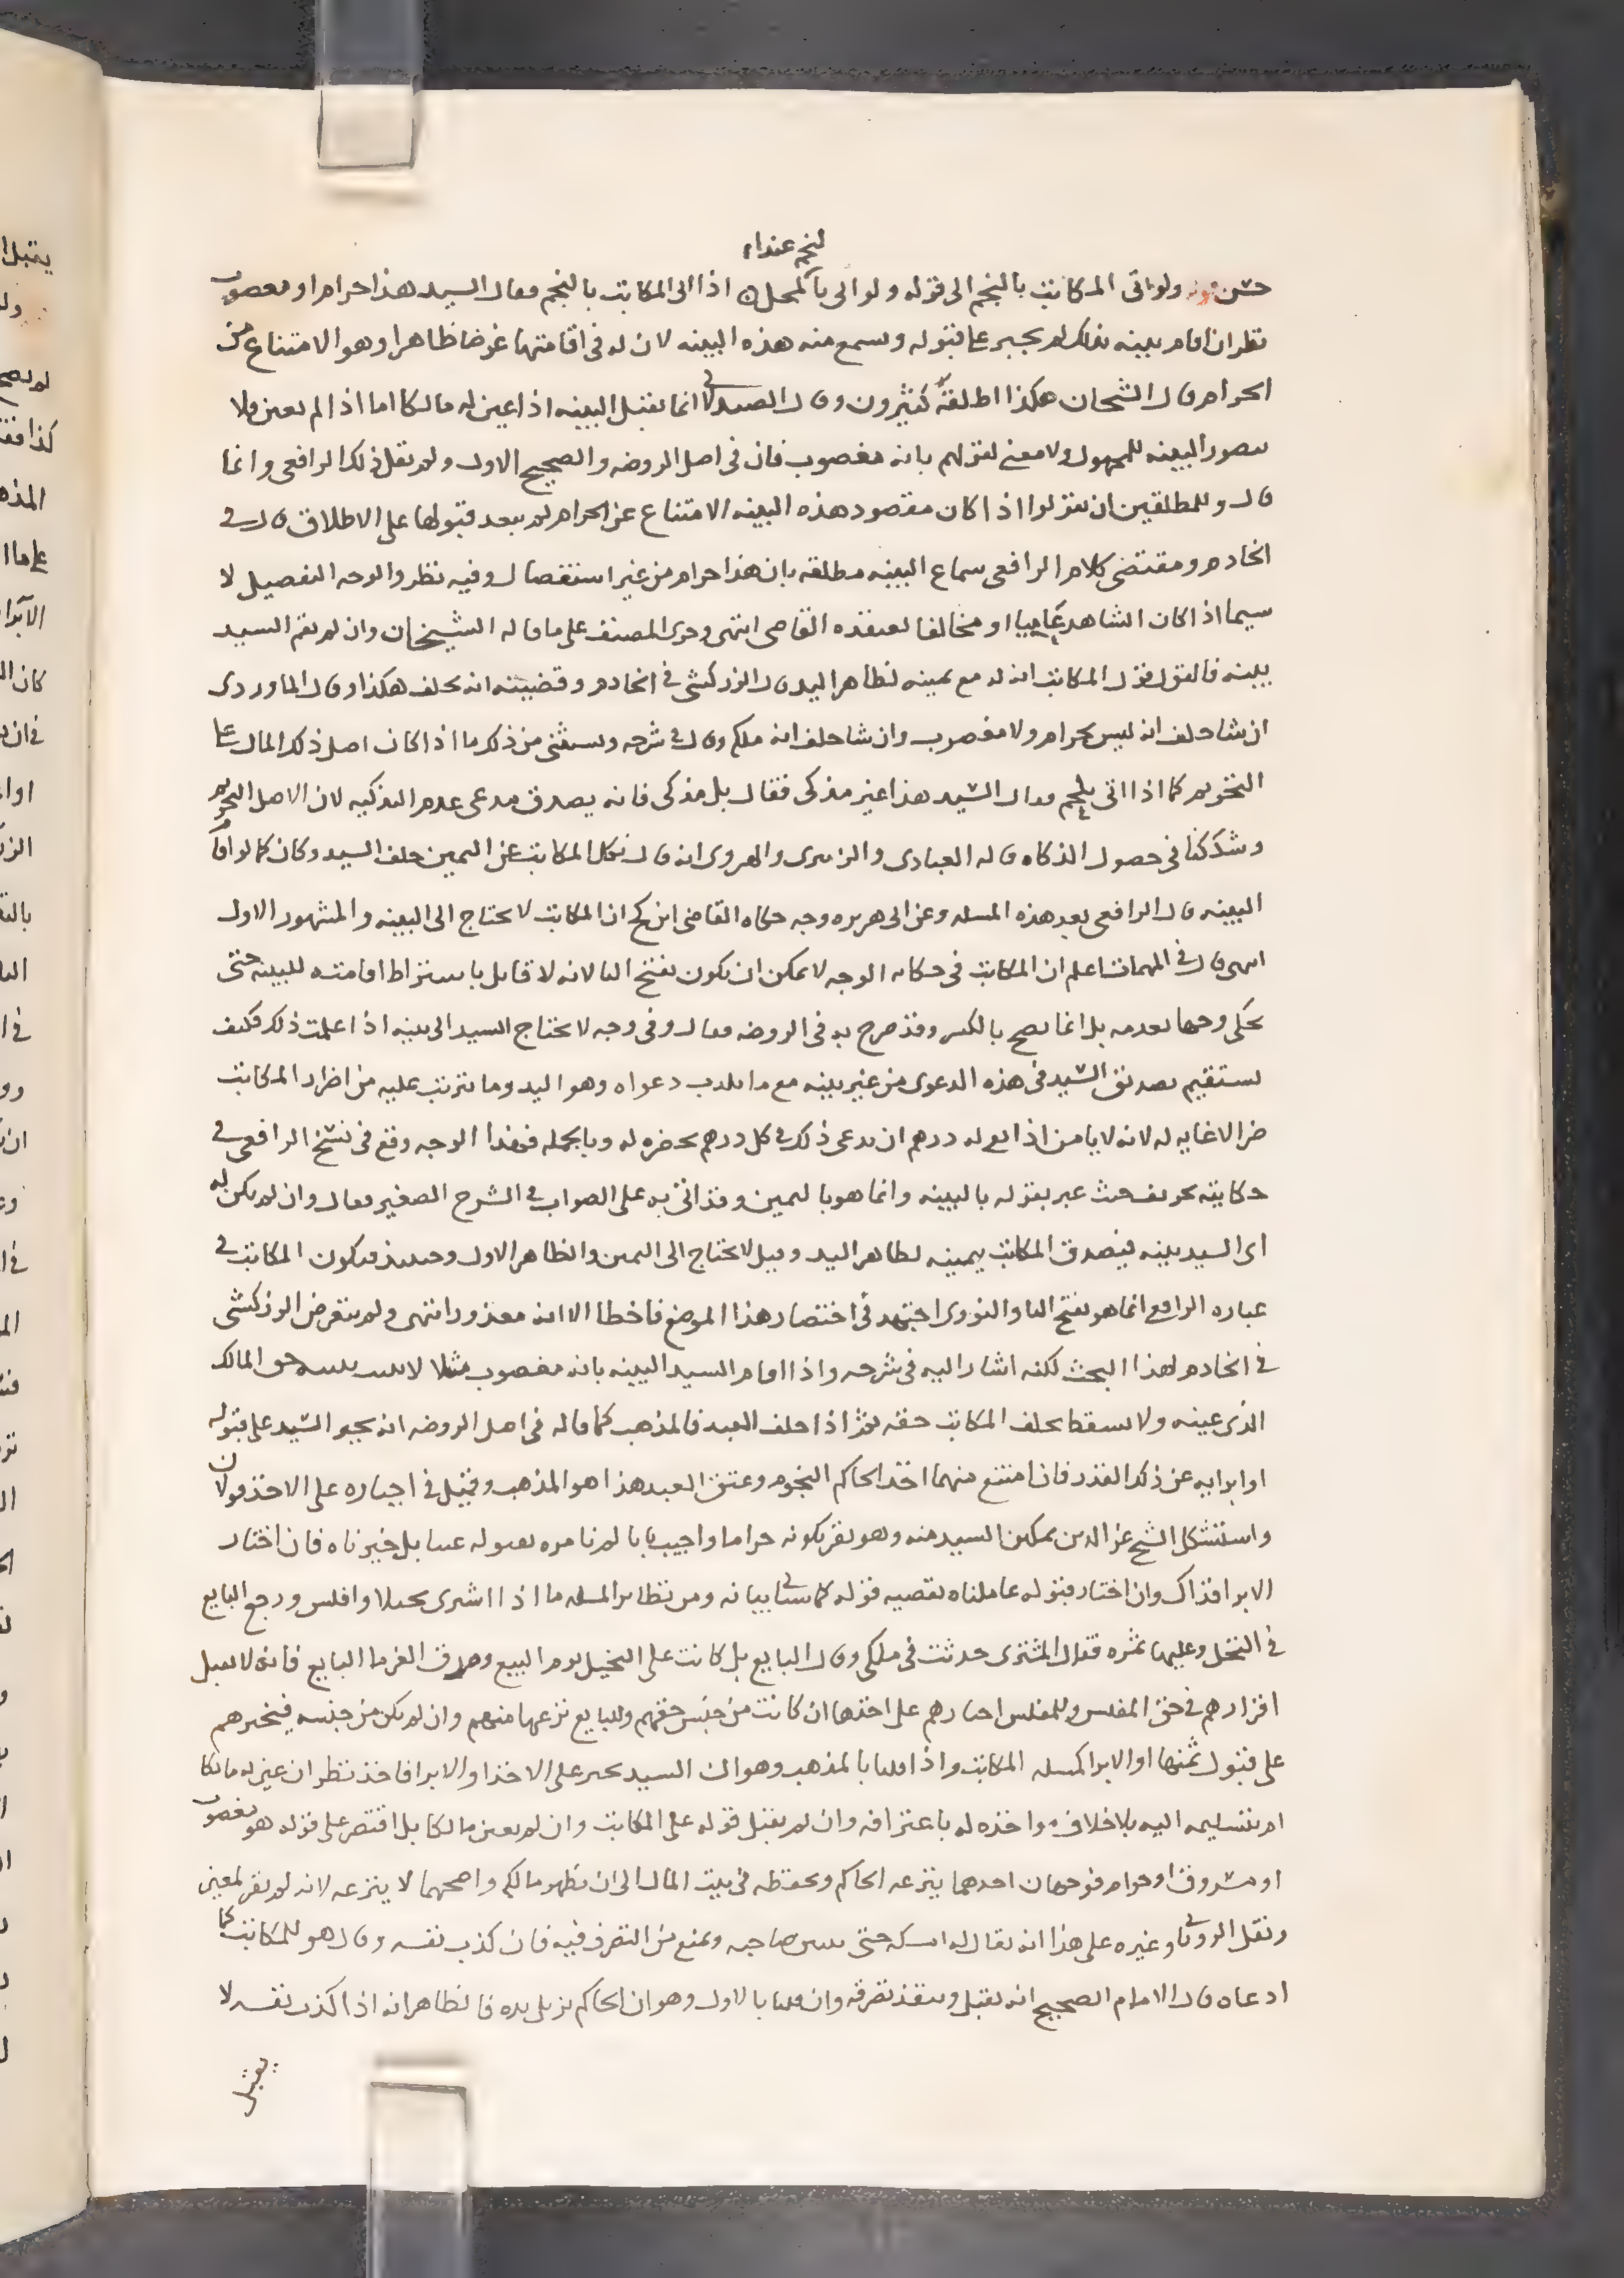 لنجم عنداء
حسن قوله ولو اتى المكاتب بالنجم الى قوله ولو اتى بالمحل اذا اتى المكاتب بالنجم فقال السيد هذا حرام او مغصوب
نظر ان اقام بينه بذلك لم يجبر على قبوله وسمع منه هذه البينه لان له فى اقامتها غرضا ظاهرا وهو الامتناع من
الحرام قال الشيخان هكذا اطلقه كثيرون وقال الصيدلانى انما تقبل البينه اذا عين له مالكا اما اذا لم يعين فلا
تتصور البينه للمجهول ولا معنى لقولهم بانه مغصوب قال فى اصل الروضه والصحيح الاول ولم يقل ذلك الرافعى وانما
قال وللمطلقين ان يقولوا اذا كان مقصود هذه البينه الامتناع عن الحرام لم يبعد قبولها على الاطلاق قال فى
الخادم ومقتضى كلام الرافعى سماع البينه مطلقه بان هذا حرام من غير استفصال وفيه نظر والوجه التفصيل لا
سيما اذا كان الشاهد عاميا او مخالفا لعقيده القاضى انتهى وجرى المصنف على ما قاله الشيخان وان لم يقم السيد
بينه فالقول قول المكاتب انه له مع يمينه لظاهر اليد قال الزركشى فى الخادم وقضيته انه يحلف هكذا وقال الماوردى
ان شا حلف انه ليس بحرام ولا مغصوب وان شا حلف انه ملكه وقال فى شرحه ويستثنى من ذلك ما اذا كان اصل ذلك المال على
التحريم كما اذا اتى بلحم فقال السيد هذا غير مذكى فقال بل مذكى فانه يصدق مدعى عدم التذكيه لان الاصل التحريم
وشككنا فى حصول الذكاه قاله العبادى والزبيرى والهروى انه قال نكل المكاتب عن اليمين حلف السيد وكان كما لو اقام
البينه قال الرافعى بعد هذه المسله وعن ابى هريره وجه حكاه القاضى ابن كج ان المكاتب لا يحتاج الى البينه والمشهور الاول
انتهى قال فى المهمات اعلم ان المكاتب فى حكايه الوجه لا يمكن ان يكون بفتح التا لانه لا قايل باشتراط اقامته للبينه حتى
يحكى وجها بعدمه بل انما يصح بالكسر وقد صرح به فى الروضه فقال وفى وجه لا يحتاج السيد الى بينه اذا علمت ذلك فكيف
يستقيم تصديق السيد فى هذه الدعوى من غير بينه مع ما يكذب دعواه وهو اليد وما يترتب عليه من اضرار المكاتب
ضررا لا غايه له لانه لا يامن اذا دفع له درهم ان يدعى ذلك فى كل درهم يحضره له وبالجمله فهذا الوجه وقع فى نسخ الرافعى فى
حكايته تحريف حيث عبر بقوله بالبينه وانما هو باليمين وقد اتى به على الصواب فى الشرح الصغير فقال وان لم يكن له
اى السيد بينه فيصدق المكاتب بيمينه لظاهر اليد وقيل لا يحتاج الى اليمين والظاهر الاول وحينيذ فيكون المكاتب فى
عباره الرافعى انما هو بفتح التا والنووى اجتهد فى اختصار هذا الموضع فاخطا الا انه معذور انتهى ولم يتعرض الزركشى
فى الخادم لهذا البحث لكنه اشار اليه فى شرحه واذا اقام السيد البينه بانه مغصوب مثلا لا يثبت ببينته حق المالك
الذى عينه ولا يسقط بحلف المكاتب حقه ثم اذا حلف العبد فالمذهب كما قاله فى اصل الروضه انه يجبر السيد على قبوله
او ابرايه عن ذلك القدر فان امتنع منهما اخذ الحاكم النجوم وعتق العبد هذا هو المذهب وقيل فى اجباره على الاخذ قولان
واستشكل الشيخ عز الدين تمكين السيد منه وهو يقر بكونه حراما واجيب بانا لم نامره بقبوله عينا بل خيرناه فان اختار
الابرا فذاك وان اختار قبوله عاملناه بقضيه قوله كما سياتى بيانه ومن نظاير المسله ما اذا اشترى نخلا وافلس ورجع البايع
فى النخل وعليها ثمره فقال المشترى حدثت فى ملكى وقال البايع بل كانت على النخيل يوم البيع وصدق الغرما البايع فانه لا يقبل
اقرارهم فى حق المفلس وللمفلس اجبارهم على اخذها ان كانت من جنس حقهم وللبايع نزعها منهم وان لم يكن من جنسه فيجبرهم
على قبول ثمنها او الابرا كمسله المكاتب واذا قلنا بالمذهب وهو ان السيد يجبر على الاخذ او الابرا فاخذ نظر ان عين له مالكا
امر بتسليمه اليه بلا خلاف مواخذه له باعترافه وان لم يقبل قوله على المكاتب وان لم يعين مالكا بل اقتصر على قوله هو مغصوب
او مسروق او حرام فوجهان احدهما ينزعه الحاكم ويحفظه فى بيت المال الى ان يظهر مالكه واصحهما لا ينزعه لانه لم يقر لمعين
ونقل الرويانى وغيره على هذا انه يقال له امسكه حتى يتبين صاحبه ويمنع من التصرف فيه فان كذب نفسه وقال هو للمكاتب كما
ادعاه قال الامام الصحيح انه يقبل وينفذ تصرفه وان قلنا بالاول وهو ان الحاكم يزيل يده فالظاهر انه اذا اكذب نفسه لا
يقبل